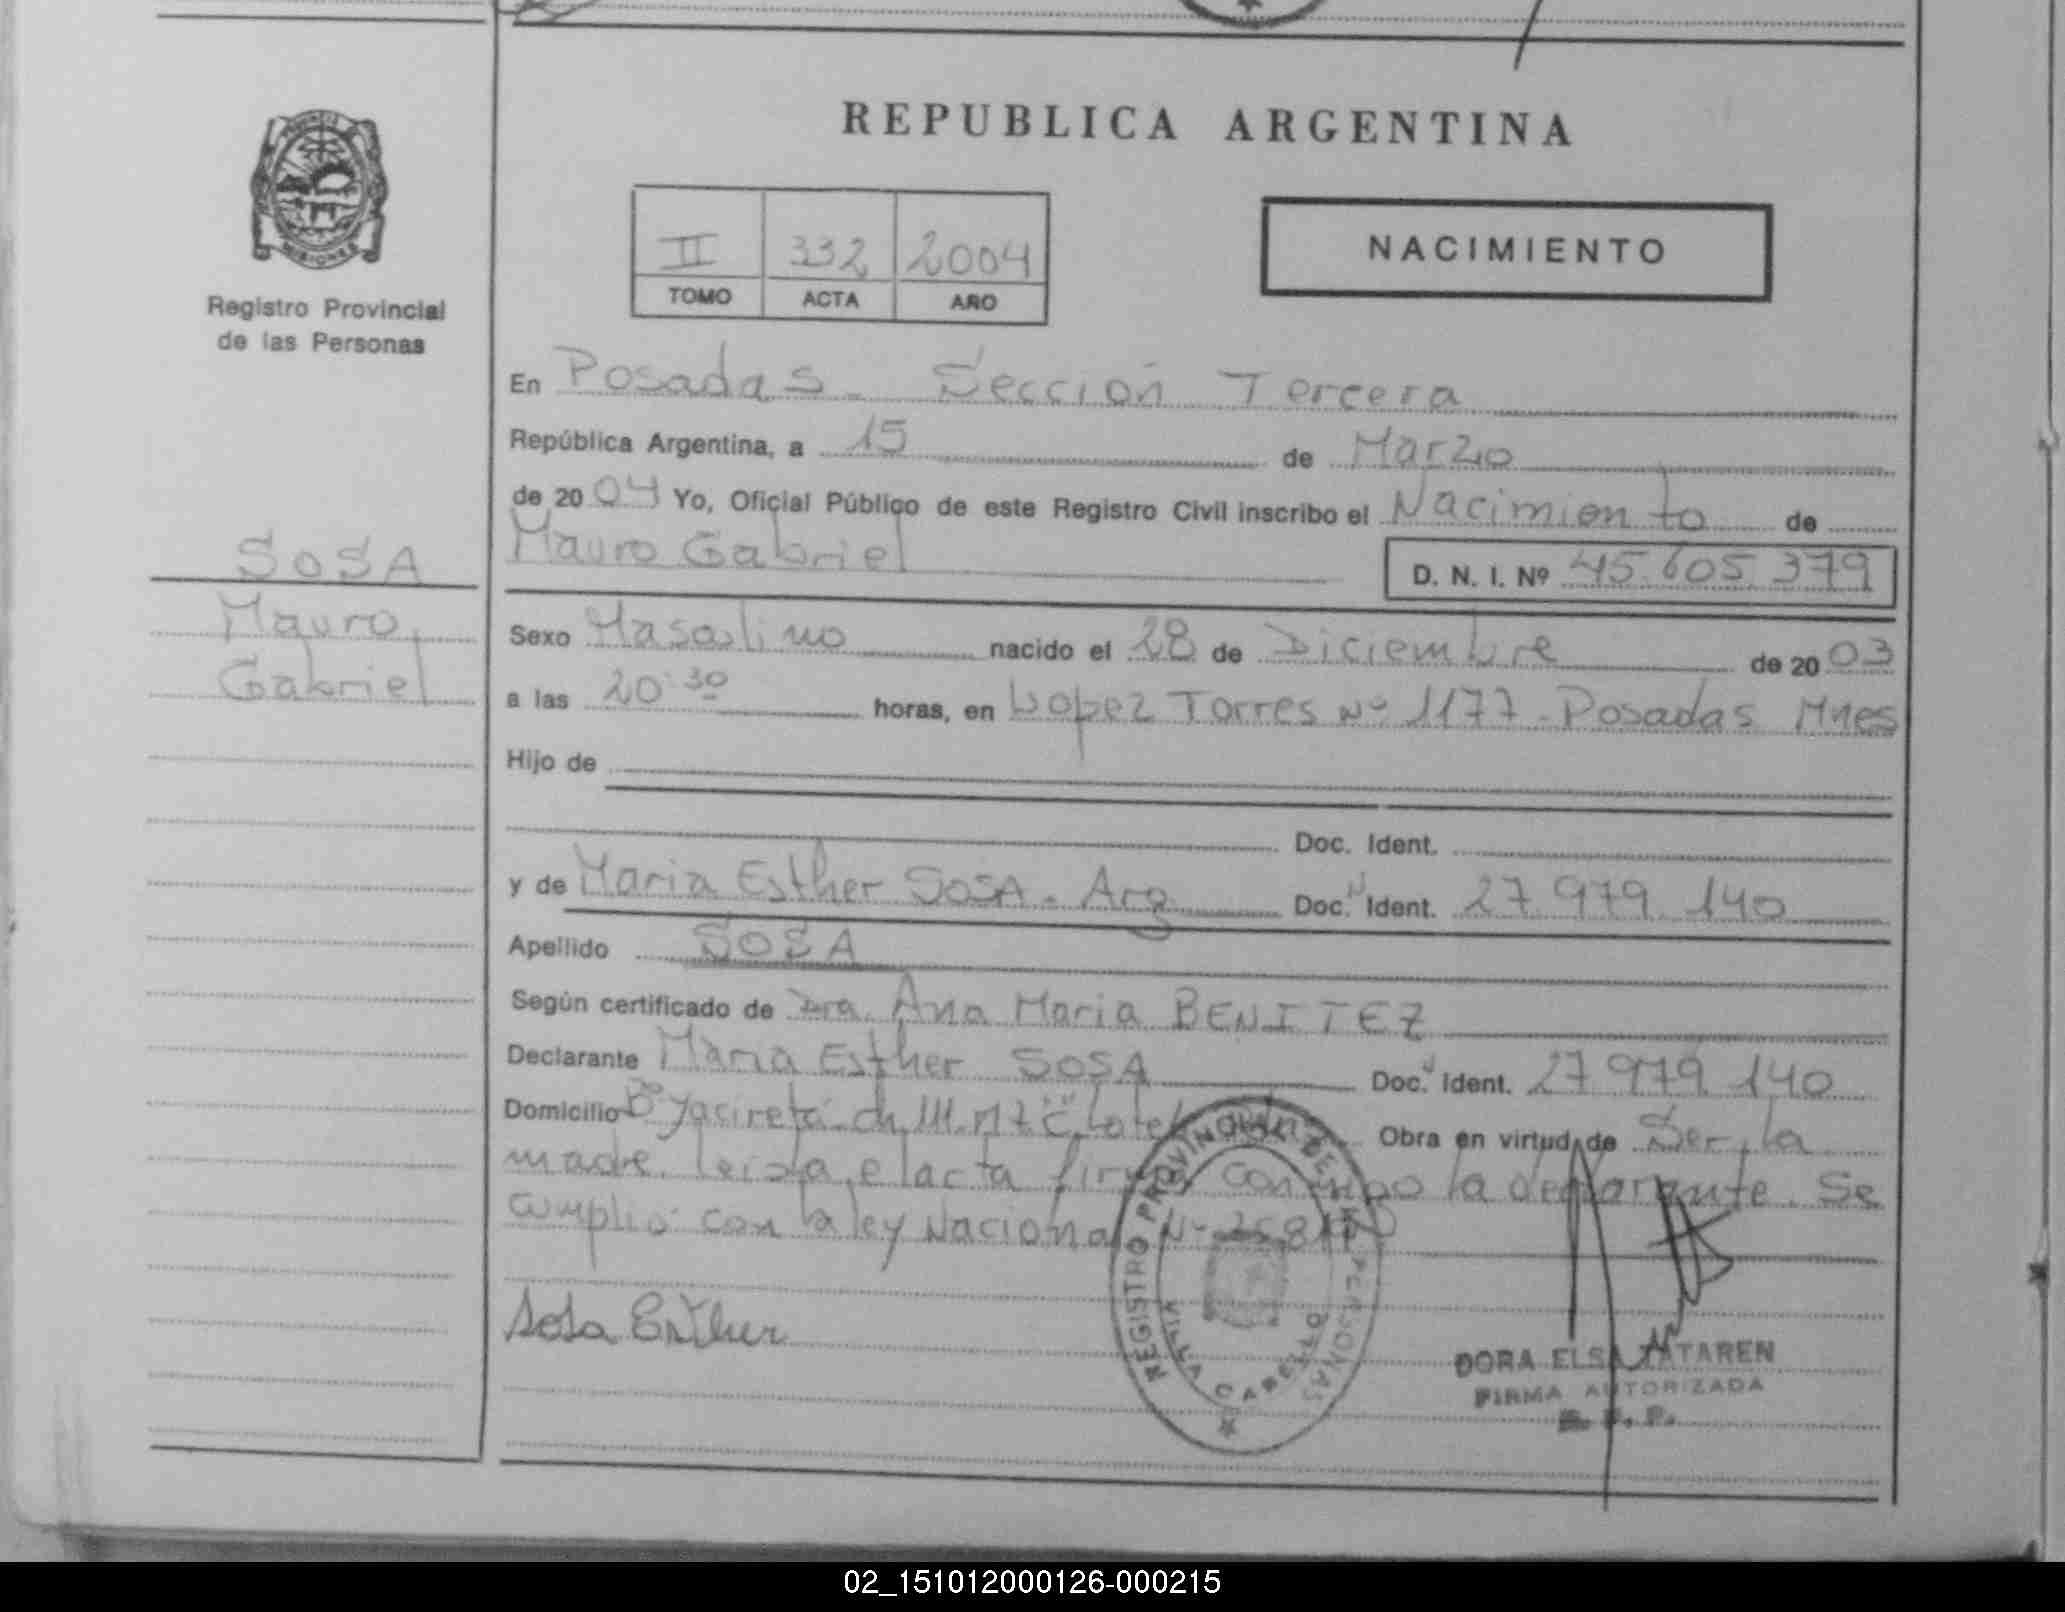 REPUBLICA ARGENTINA
PROVINCIA DE
MISIONES
Registro Provincial
de las Personas
II 332 2004
TOMO ACTA AÑO
NACIMIENTO
En Posadas - Sección Tercera
República Argentina, a 15 de Marzo
de 2004 Yo, Oficial Público de este Registro Civil inscribo el Nacimiento de
Mauro Gabriel
D. N. I. Nº 45.605.379
SOSA
Mauro
Gabriel
Sexo Masculino nacido el 28 de Diciembre de 2003
a las 20:30 horas, en Lopez Torres Nº 1177 - Posadas Mnes
Hijo de
Doc. Ident.
y de Maria Esther SOSA - Arg Doc. Ident. 27.979.140
Apellido SOSA
Según certificado de Dra. Ana Maria BENITEZ
Declarante Maria Esther SOSA Doc. Ident. 27.979.140
Domicilio Bº Yacireta ch. Obra en virtud de Ser la
madre. leida el acta firma conmigo la declarante. Se
cumplio con la ley Nacional Nº
Sosa Esther
REGISTRO PROVINCIAL DE LAS PERSONAS
VILLA CABELLO
DORA ELSA
FIRMA AUTORIZADA
R. P. P.
02_151012000126-000215